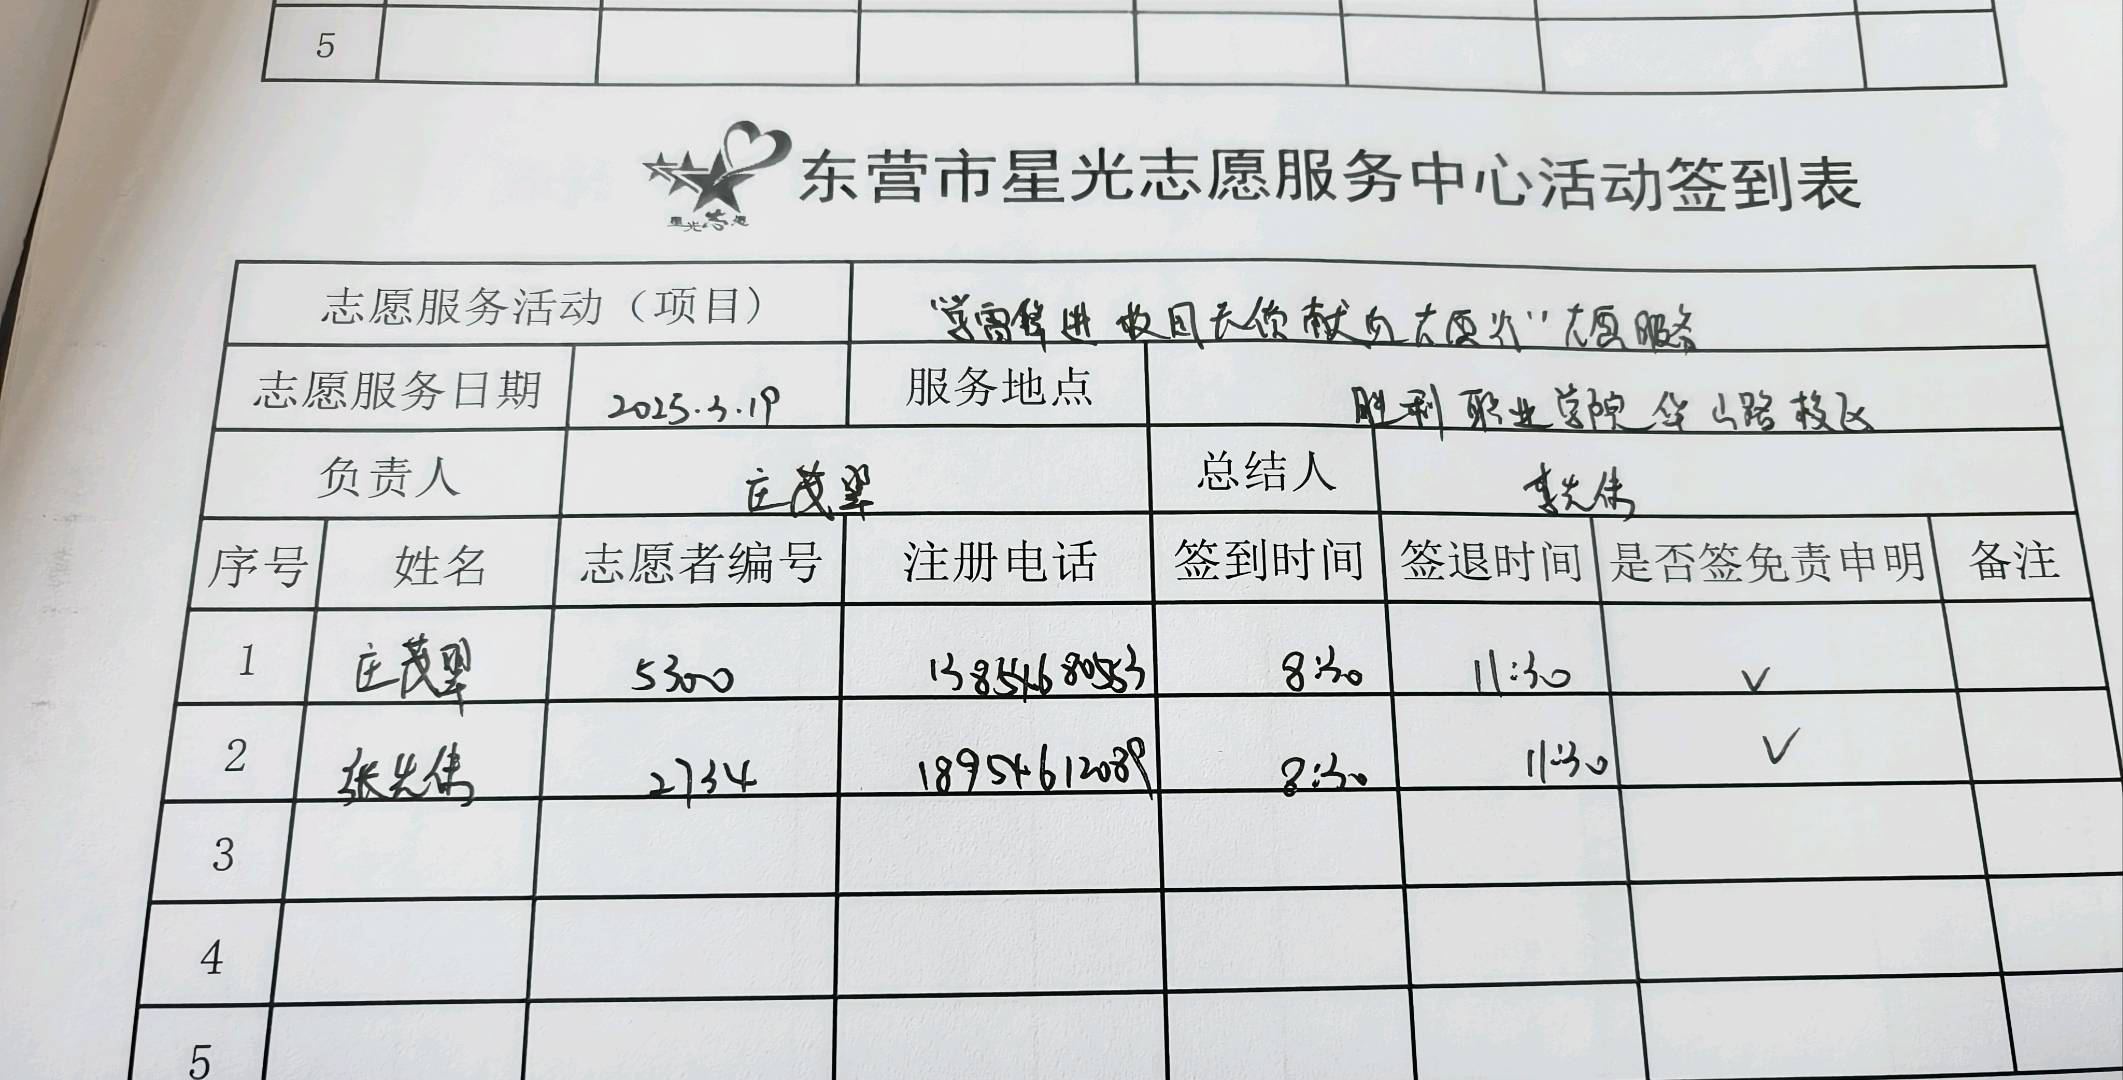 5
星光志愿
东营市星光志愿服务中心活动签到表
志愿服务活动（项目） “学雷锋进校园无偿献血志愿行”志愿服务
志愿服务日期 2025.3.19 服务地点 胜利职业学院华山路校区
负责人 庄茂翠 总结人 李先伟
序号 姓名 志愿者编号 注册电话 签到时间 签退时间 是否签免责申明 备注
1 庄茂翠 5300 13854680553 8:30 11:30 ✓
2 张先伟 2734 18954612089 8:30 11:30 ✓
3
4
5